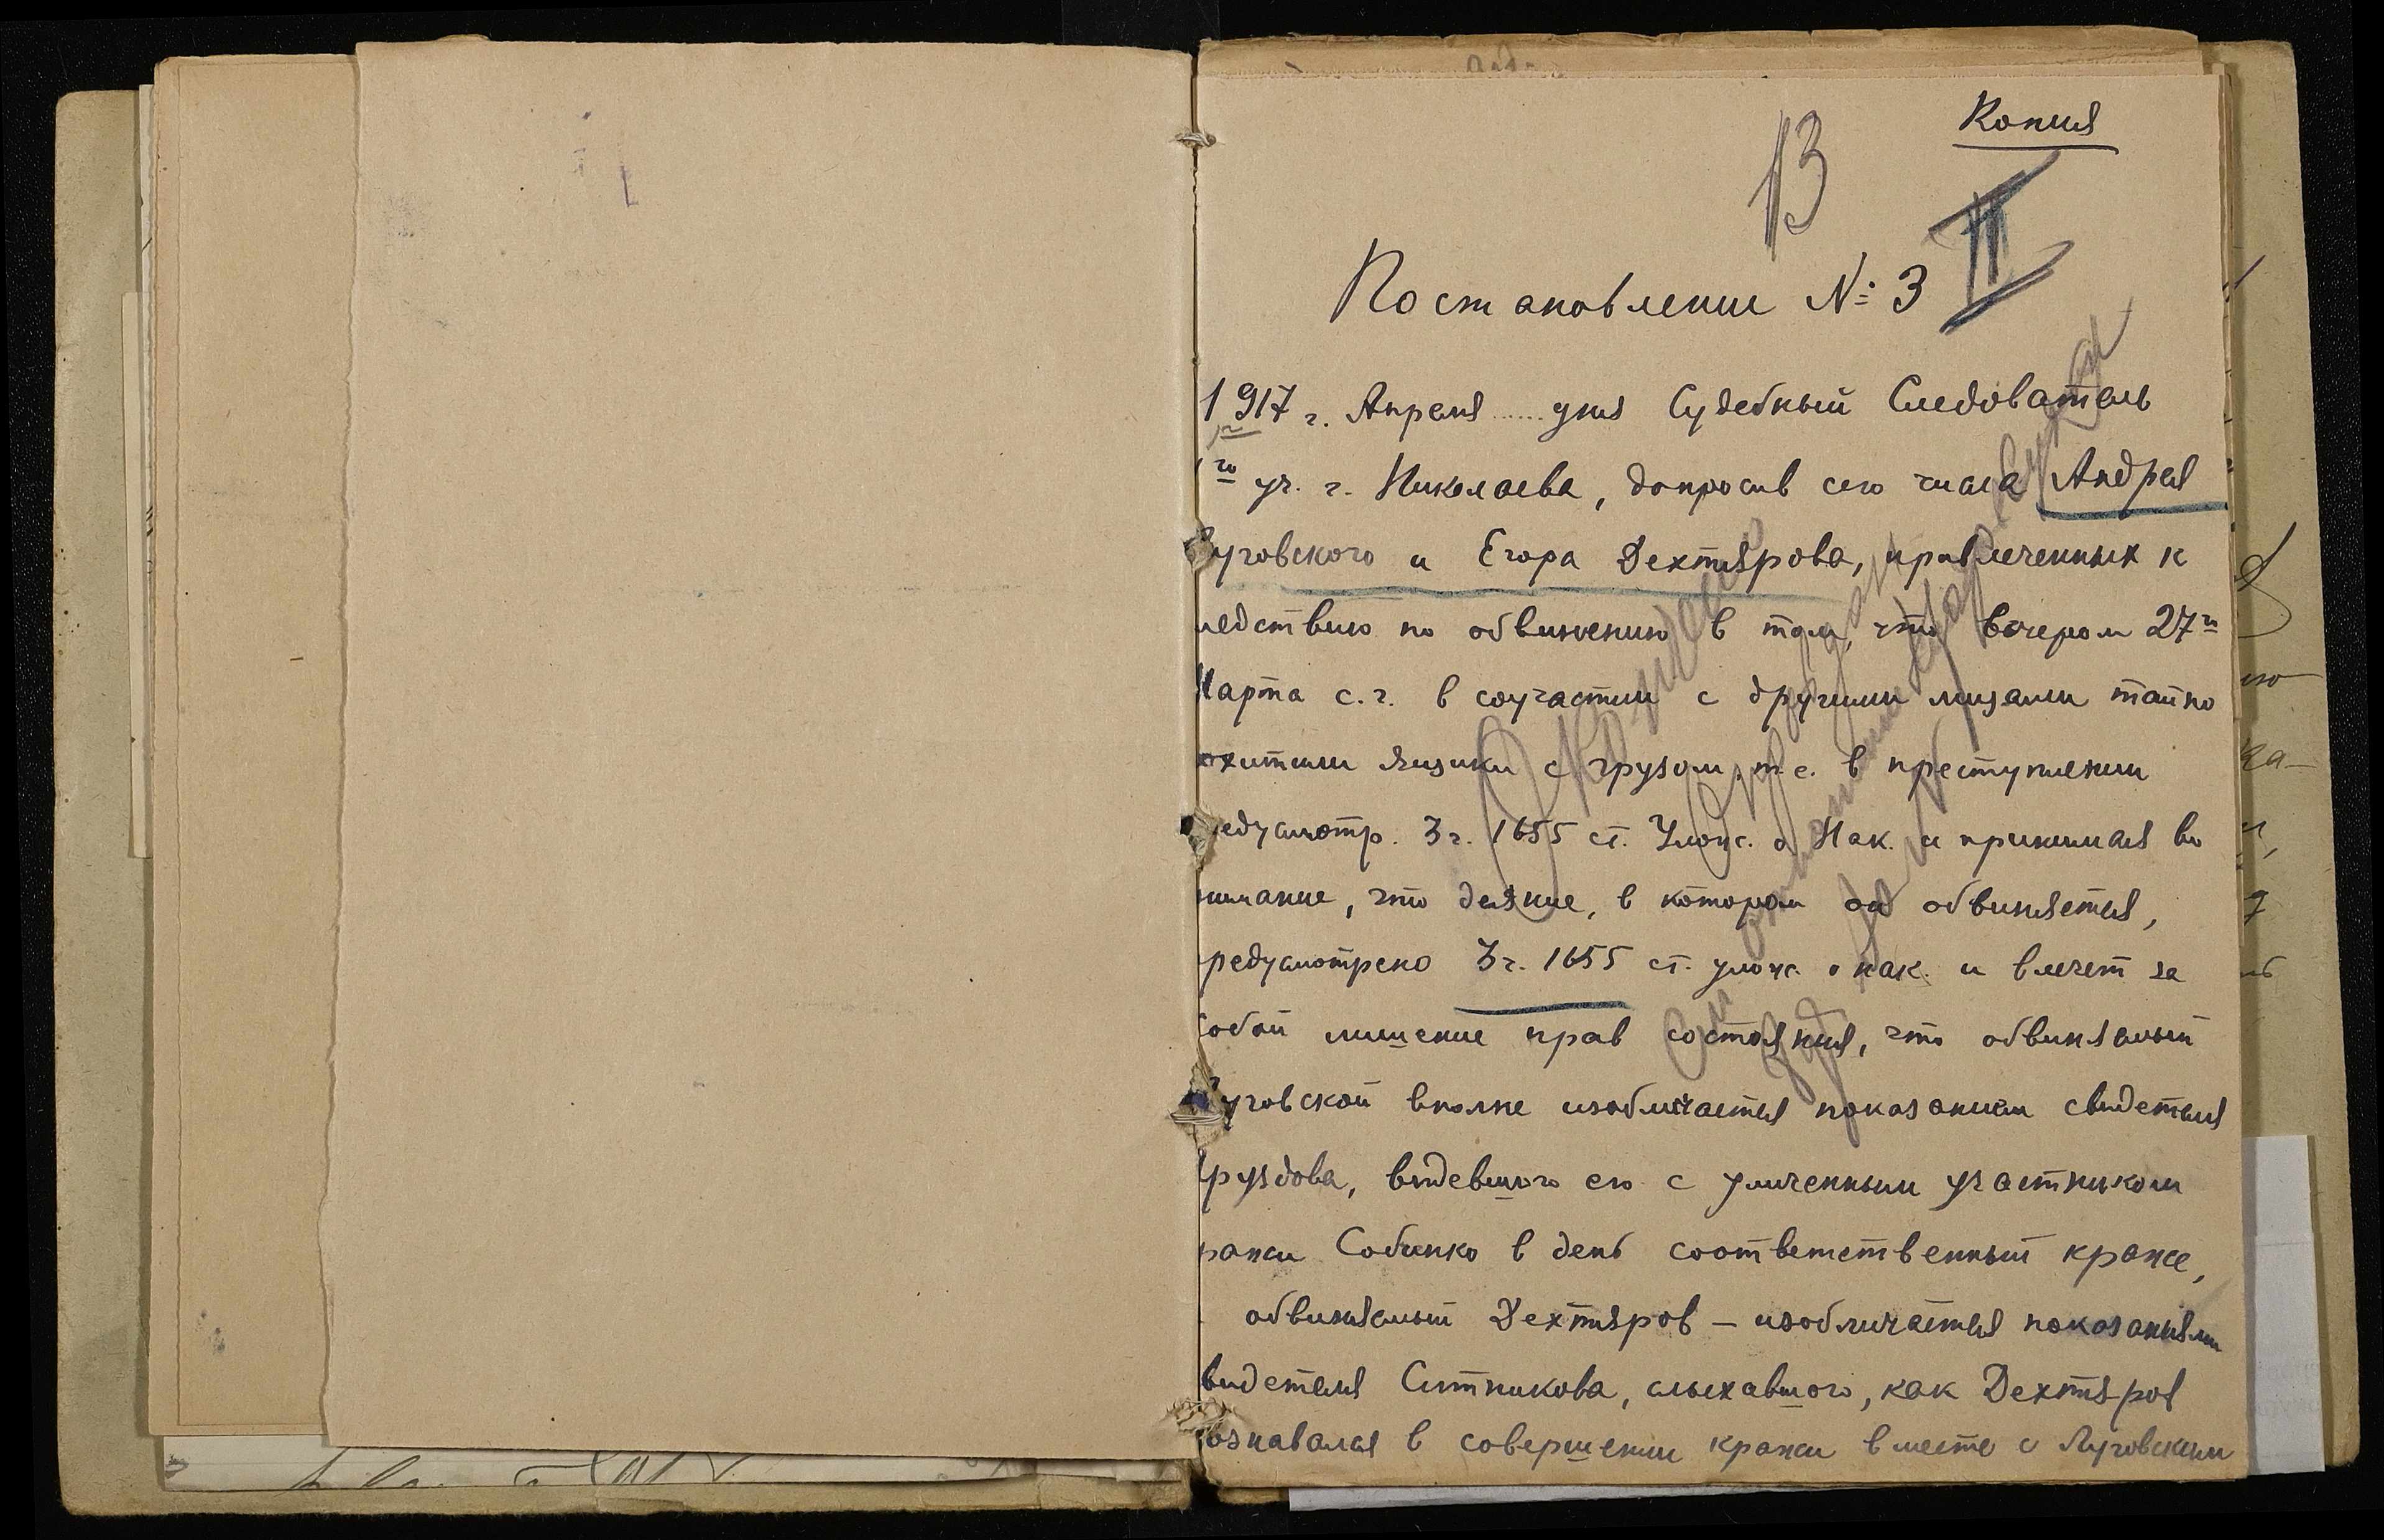 Копия
13
II
Постановление №: 3
1917 г. Апреля ...... дня Судебный Следователь
1го уч. г. Николаева, допросив сего числа Андрея
Луговского и Егора Дехтярова, привлеченных к
ледствию по обвинению в том, что вечером 27го
Марта с.г. в соучастии с другими лицами тайно
охитили ящики с грузом, т.е. в преступлении
редусмотр. 3 ч. 1655 ст. Улож. о Нак. и принимая во
нимание, что деяние, в котором он обвиняется,
редусмотрено 3 ч. 1655 ст. улож. о нак. и влечет за
собой лишение прав состояния, что обвиняемый
Луговской вполне изобличается показанием свидетеля
Груздова, видевшого его с уличенным участником
ражи Собинко в день соответственный краже,
обвиняемый Дехтяров – изобличается показаниями
видетеля Ситникова, слыхавшого, как Дехтяров
ознавался в совершении кражи вместе с Луговским